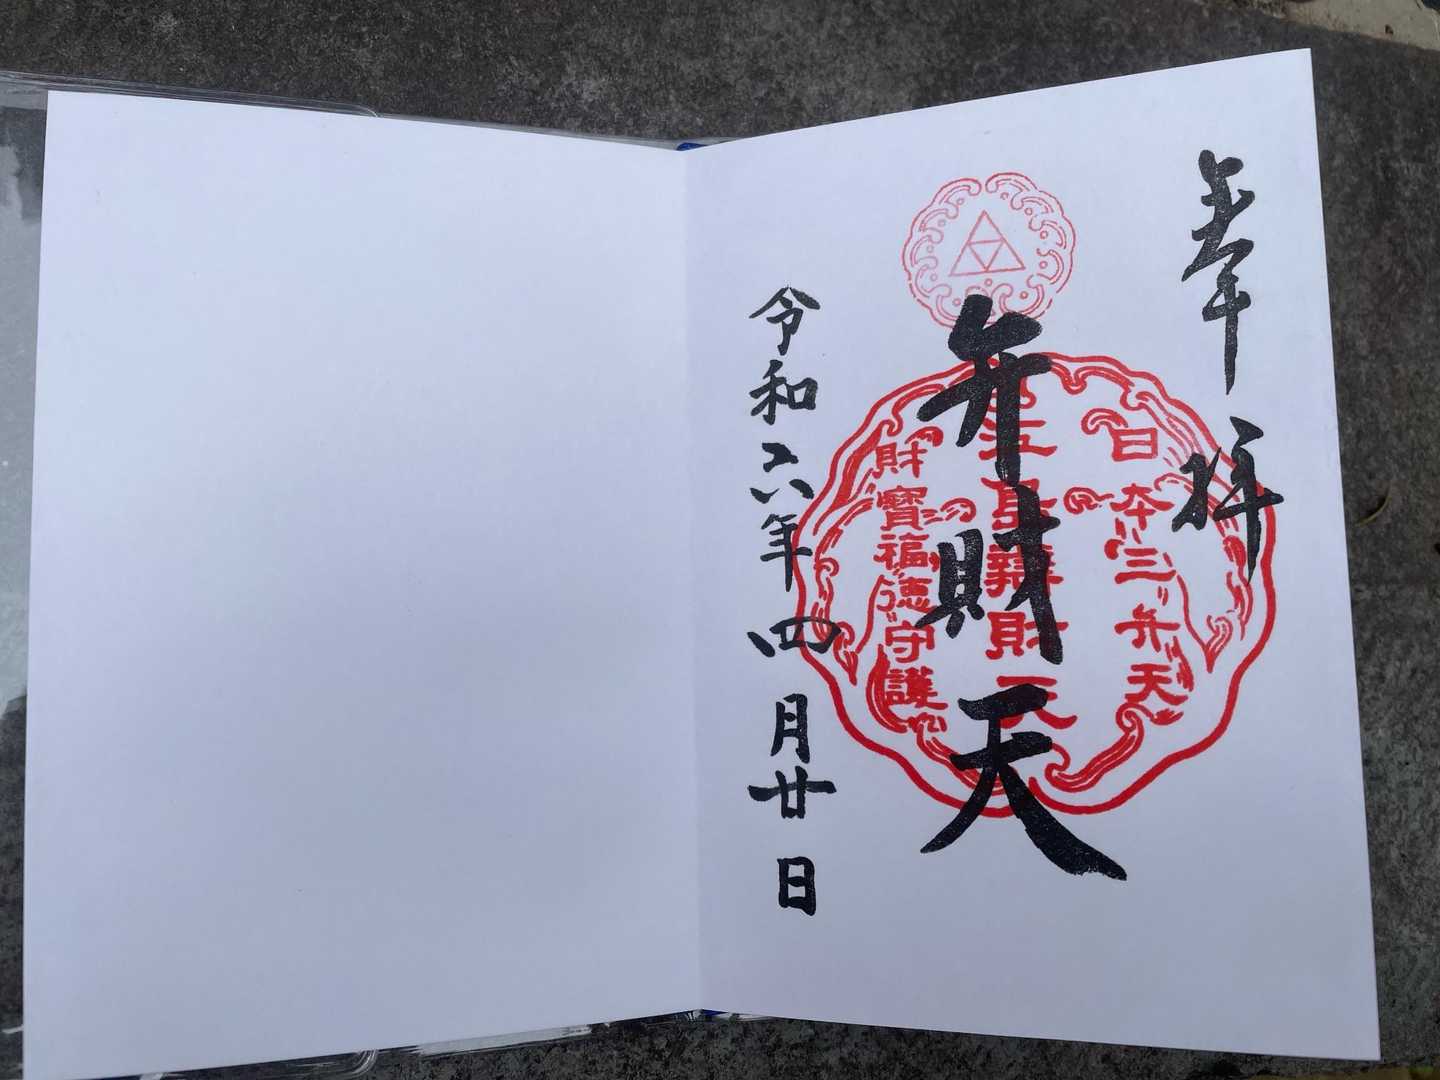 奉拝
日本三弁天
弁財天
財寶福徳守護
令和六年四月廿日